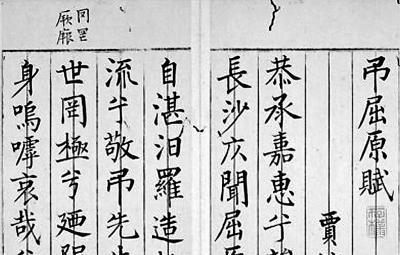 弔屈原賦
賈
恭承嘉惠兮竢
長沙庂聞屈原
自湛汨羅造
流兮敬弔先生
世罔極兮迺隕
身嗚嘑哀哉兮